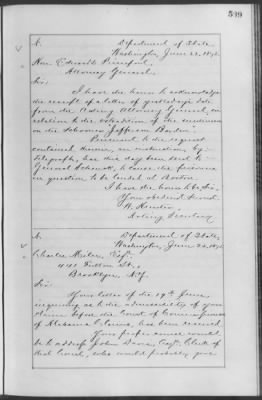 509
Department of State,
Washington, June 22, 1875.
Hon. Edwards Pierrepont,
Attorney General.
Sir:
I have the honor to acknowledge
the receipt of a letter of yesterday's date
from the Acting Attorney General, in
relation to the extradition of the mutineers
on the Schooner Jefferson Borden.
Pursuant to the request
contained therein, an instruction, by
telegraph, has this day been sent to
General Schenck, to cause the prisoners
in question to be landed at Boston.
I have the honor to be, Sir,
Your obedient servant,
W. Hunter,
Acting Secretary.
Department of State,
Washington, June 22, 1875.
Charles Esq.,
Fulton St.,
Brooklyn, N.Y.
Sir:
Your letter of the 19th June,
inquiring as to the admissibility of your
claim before the Court of Commissioners
of Alabama Claims, has been received.
Your proper course would
be to address John Davis, Esq., Clerk of
that Court, who would probably give